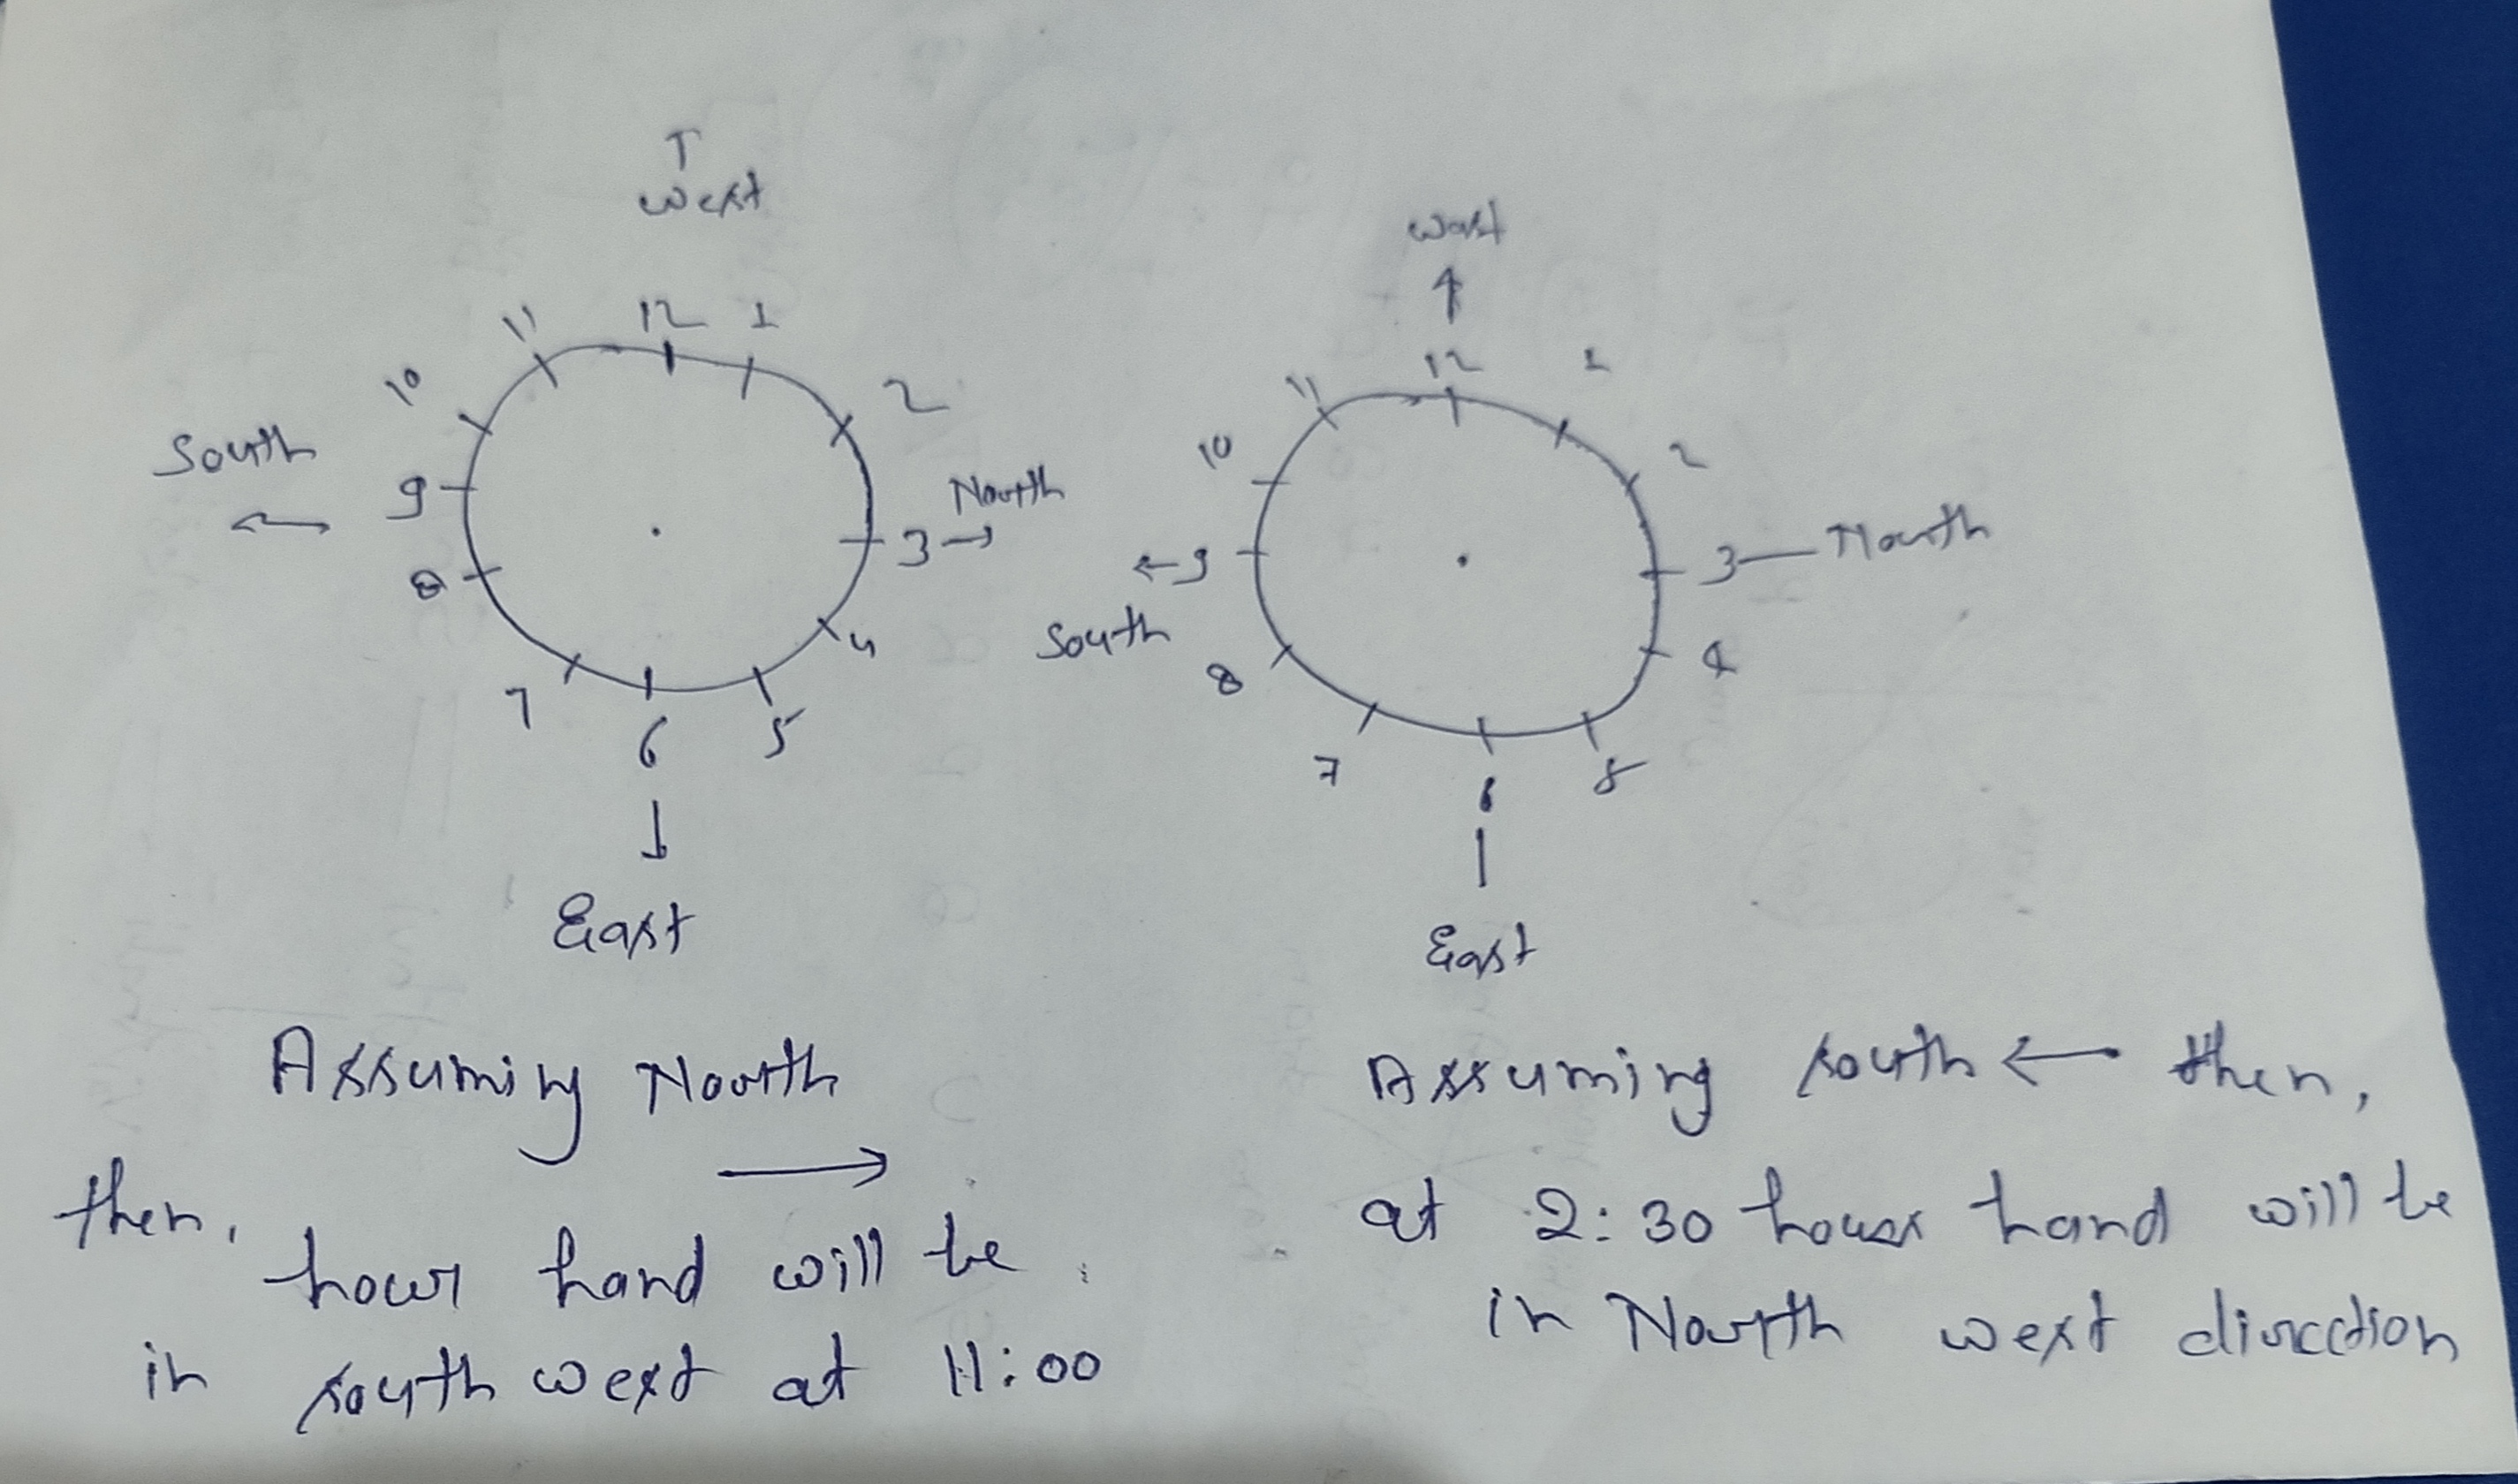 West
11 12 1
10 2
South
9 North
3
8
4
7 5
6
East
Assuming North
then,
hour hand will be
in south west at 11:00
West
12 1
11
10 2
9 3 North
South
8 4
7 6 5
East
Assuming south ← then,
at 2:30 hour hand will be
in North west direction